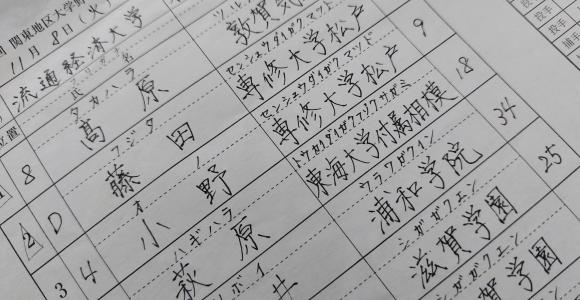 関東地区大学野
11月8日(火)
流通経済大学
位置
氏名
敦賀気
8 タカハラ 高原 センシュウダイガクマツド 専修大学松戸 9
D フジタ 藤田 センシュウダイガクマツド 専修大学松戸 18
4 オノ 小野 トウカイダイガクフゾクサガミ 東海大学付属相模 34
ハギハラ 萩原 ウラワガクイン 浦和学院 25
井 シガガクエン 滋賀学園
ガクエン 賀学園
投手
投手
投手
捕手